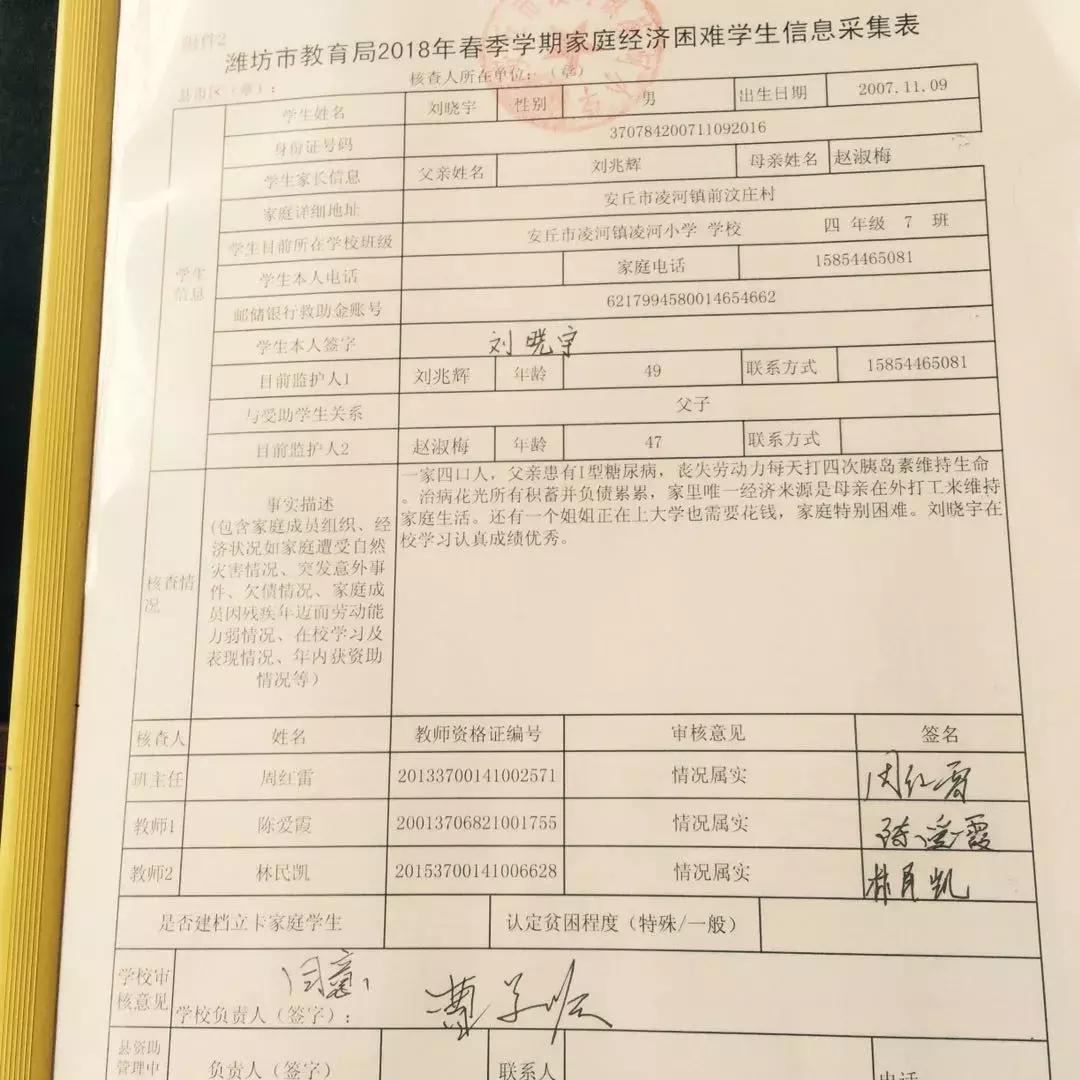 附件2
潍坊市教育局2018年春季学期家庭经济困难学生信息采集表
县市区（章）： 核查人所在单位：（章）
学生信息
学生姓名 刘晓宇 性别 男 出生日期 2007.11.09
身份证号码 370784200711092016
学生家长信息 父亲姓名 刘兆辉 母亲姓名 赵淑梅
家庭详细地址 安丘市凌河镇前汶庄村
学生目前所在学校班级 安丘市凌河镇凌河小学 学校 四 年级 7 班
学生本人电话 家庭电话 15854465081
邮储银行救助金账号 6217994580014654662
学生本人签字 刘晓宇
目前监护人1 刘兆辉 年龄 49 联系方式 15854465081
与受助学生关系 父子
目前监护人2 赵淑梅 年龄 47 联系方式
核查情况
事实描述
(包含家庭成员组织、经
济状况如家庭遭受自然
灾害情况、突发意外事
件、欠债情况、家庭成
员因残疾年迈而劳动能
力弱情况、在校学习及
表现情况、年内获资助
情况等)
一家四口人，父亲患有I型糖尿病，丧失劳动力每天打四次胰岛素维持生命
。治病花光所有积蓄并负债累累，家里唯一经济来源是母亲在外打工来维持
家庭生活。还有一个姐姐正在上大学也需要花钱，家庭特别困难。刘晓宇在
校学习认真成绩优秀。
核查人 姓名 教师资格证编号 审核意见 签名
班主任 周红雷 20133700141002571 情况属实 周红雷
教师1 陈爱霞 20013706821001755 情况属实 陈爱霞
教师2 林民凯 20153700141006628 情况属实 林民凯
是否建档立卡家庭学生 认定贫困程度（特殊/一般）
学校审
核意见
学校负责人（签字）：
县资助
管理中
负责人（签字） 联系人 电话